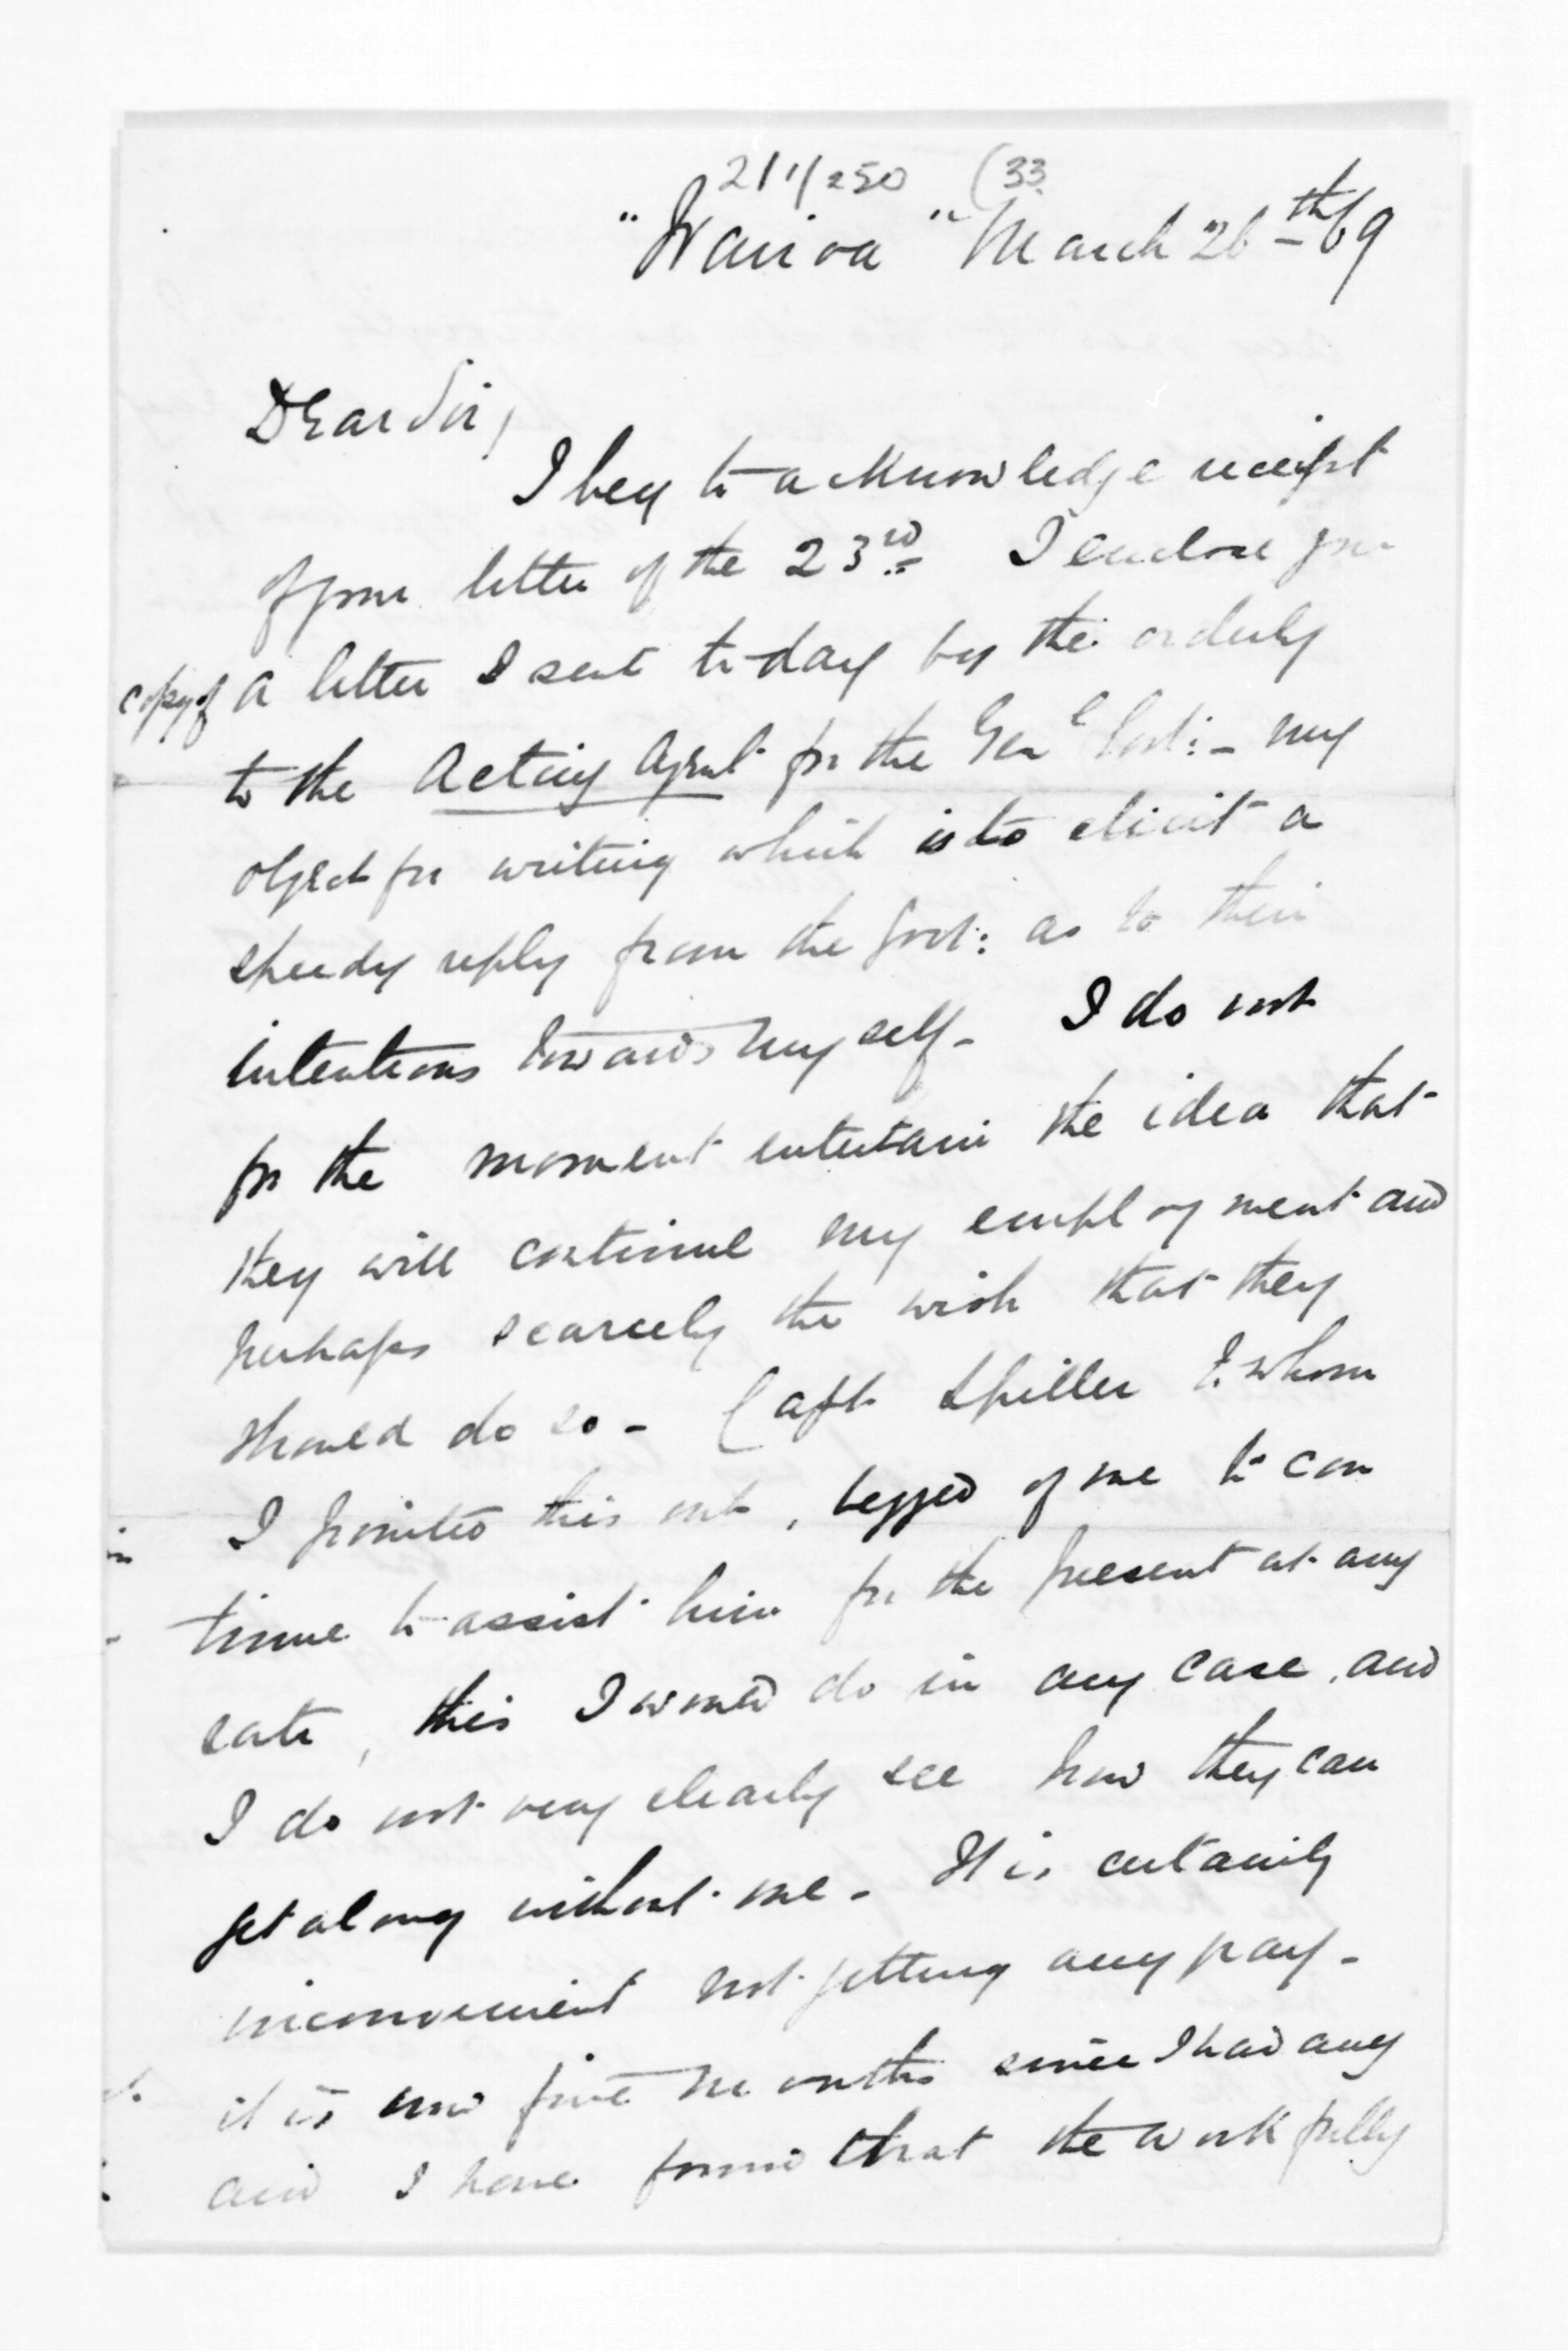 211/250 (33
"Wairoa" March 26th 69
Dear Sir,
I beg to acknowledge receipt
of your letter of the 23rd I enclose you
copy of a letter I sent to-day by the orderly
to the Acting Agent for the Genl Govt: - my
object for writing which is to elicit a
speedy reply from the Govt: as to their
intentions towards myself - I do not
for the moment entertain the idea that
they will continue my employment and
perhaps scarcely the wish that they
should do so - Capt Spiller to whom
I pointed this out, begged of me to con
tinue to assist him for the present at any
rate, this I would do in any case, and
I do not very clearly see how they can
get along without me - It is certainly
inconvenient not getting any pay -
it is now five months since I had any
and I have found that the work fully